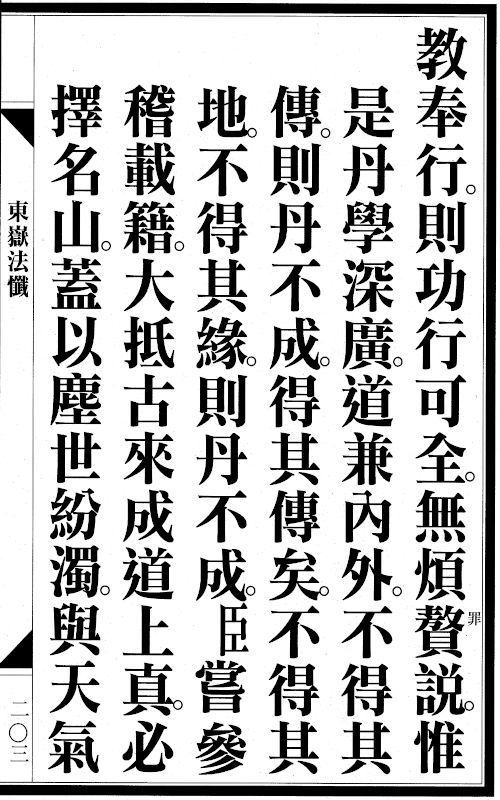 教奉行。則功行可全。無煩贅説。惟
罪
是丹學深廣。道兼內外。不得其
傳。則丹不成。得其傳矣。不得其
地。不得其緣。則丹不成。臣嘗參
稽載籍。大抵古來成道上真。必
擇名山。蓋以塵世紛濁。與天氣
東嶽法懺
二〇三